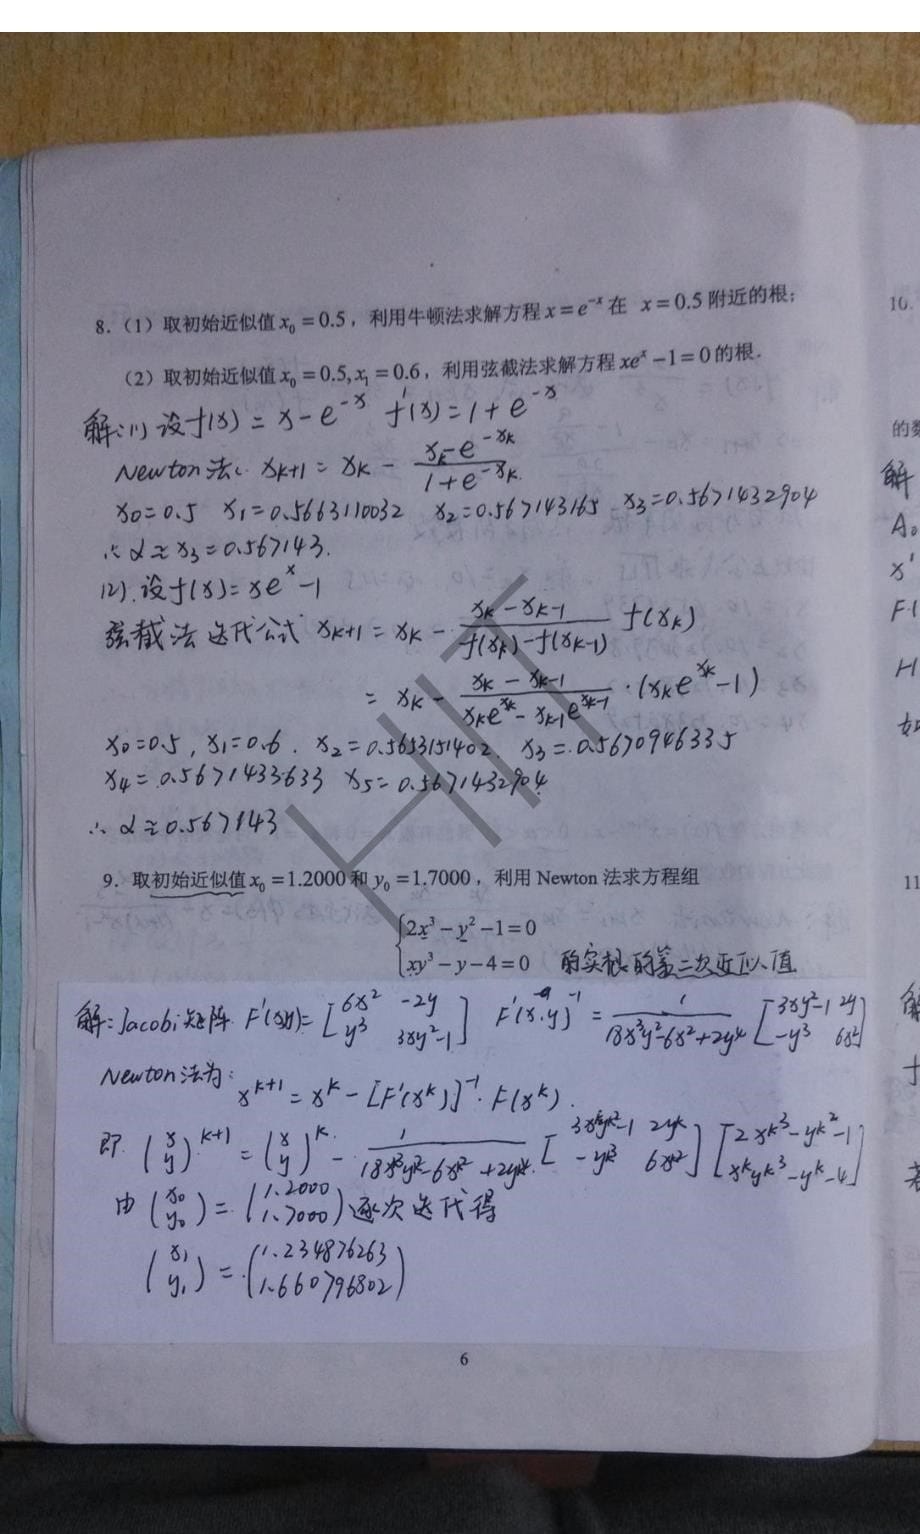 8.（1）取初始近似值 x₀ = 0.5，利用牛顿法求解方程 x = e⁻ˣ 在 x = 0.5 附近的根；
（2）取初始近似值 x₀ = 0.5, x₁ = 0.6，利用弦截法求解方程 xeˣ − 1 = 0 的根．
解:(1) 设 f(x) = x − e⁻ˣ f'(x) = 1 + e⁻ˣ
Newton法: x_{k+1} = x_k − (x_k − e^{−x_k})/(1 + e^{−x_k})
x₀=0.5 x₁=0.5663110032 x₂=0.567143165 x₃=0.5671432904
∴ α ≈ x₃ = 0.567143.
(2). 设 f(x) = xeˣ − 1
弦截法迭代公式 x_{k+1} = x_k − (x_k − x_{k−1})/(f(x_k) − f(x_{k−1})) f(x_k)
= x_k − (x_k − x_{k−1})/(x_k e^{x_k} − x_{k−1} e^{x_{k−1}}) · (x_k e^{x_k} − 1)
x₀=0.5, x₁=0.6. x₂=0.5653151402 x₃=0.5670946335
x₄=0.5671433633 x₅=0.5671432904
∴ α ≈ 0.567143
HIT
9. 取初始近似值 x₀ = 1.2000 和 y₀ = 1.7000，利用 Newton 法求方程组
{ 2x³ − y² − 1 = 0
xy³ − y − 4 = 0 的实根的第二次近似值
解: Jacobi矩阵 F'(x,y) = [6x² −2y; y³ 3xy²−1] F'(x,y)⁻¹ = 1/(18x³y²−6x²+2y⁴) [3xy²−1 2y; −y³ 6x²]
Newton法为:
x^{k+1} = x^k − [F'(x^k)]⁻¹ · F(x^k).
即 (x; y)^{k+1} = (x; y)^k − 1/(18x^{k3}y^{k2}−6x^{k2}+2y^{k4}) [3x^k y^{k2}−1 2y^k; −y^{k3} 6x^{k2}] [2x^{k3}−y^{k2}−1; x^k y^{k3}−y^k−4]
由 (x₀; y₀) = (1.2000; 1.7000) 逐次迭代得
(x₁; y₁) = (1.234876263; 1.660796802)
6
10.
的数
解
A₀
x'
H
如
11
解